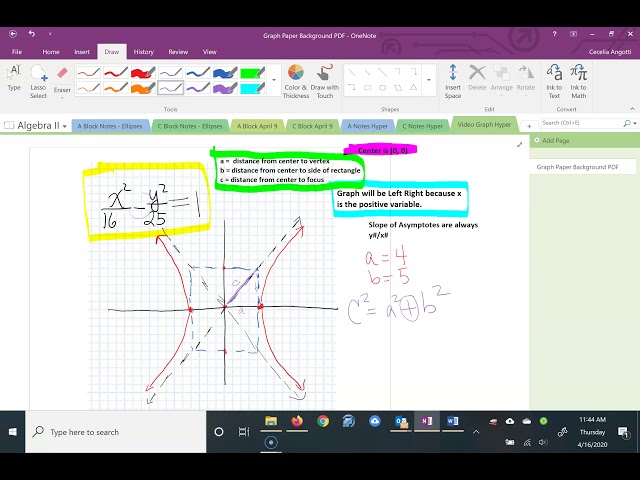 Graph Paper Background PDF - OneNote
Cecelia Angotti
File Home Insert Draw View
Type
Lasso Select
Eraser
Tools
Color & Thickness
Draw with Touch
Shapes
Insert Space
Edit
Ink to Text
Ink to Math
Convert
Algebra II
A Block Notes - Ellipses
C Block Notes - Ellipses
A Block April 9
C Block April 9
A Notes Hyper
C Notes Hyper
Video Graph Hyper
Search (Ctrl+E)
Add Page
Graph Paper Background PDF
Center is (0, 0)
a = distance from center to vertex
b = distance from center to side of rectangle
c = distance from center to focus
Graph will be Left Right because x
is the positive variable.
Slope of Asymptotes are always
y#/x#
x²/16 - y²/25 = 1
a = 4
b = 5
c² = a² + b²
c
b
a
Type here to search
11:44 AM
Thursday
4/16/2020